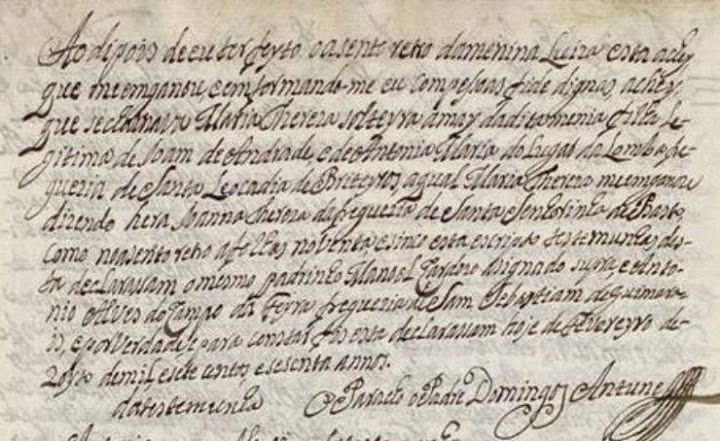 Ao dipois de eu ter feyto o asento retro da menina Luiza esta achey
que me emganou e emformando-me eu com pesoas fide dignas, achey
que se chamava Maria Thereza solteyra a may da dita menina filha le-
gitima de Joam de Andrade, e de Antonia Maria do Lugar do Lombo fre-
guezia de Santa Leocadia de Briteyros, a qual Maria Thereza me emganou
dizendo hera Joanna Thereza da freguezia de Santa Senhorinha de Basto,
como no asento retro a folhas noventa e sinco esta escripto testemunhas des-
ta declaraçam o mesmo padrinho Manoel Cardozo asignado supra, e Anto-
nio Alves do Campo da Feyra freguezia de Sam Sebastiam de Guimara-
is, e por verdade e para constar fis esta declaraçam hoje de Fevereyro de-
zoyto de mil e sete centos, e sesenta annos.
da testemunha O Paracho o Padre Domingos Antunes